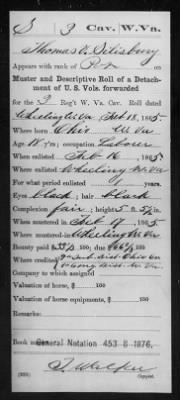 S 3 Cav. W.Va.
Thomas V. Silsbury
Appears with rank of Pvt on
Muster and Descriptive Roll of a Detach-
ment of U. S. Vols. forwarded
for the 3 Reg't W. Va. Cav. Roll dated
Wheeling W Va Feb 18, 1865
Where born Ohio W Va
Age 18 y'rs; occupation Laborer
When enlisted Feb 16, 1865
Where enlisted Wheeling W Va
For what period enlisted years.
Eyes black; hair black
Complexion fair; height 5 ft. in.
When mustered in Feb 17, 1865
Where mustered in Wheeling W Va
Bounty paid $33 1/3 100; due $66 2/3 100
Where credited
Company to which assigned
Valuation of horse, $ 100
Valuation of horse equipments, $ 100
Remarks:
Book mark: General Notation 453 B 1876,
Walker
Copyist.